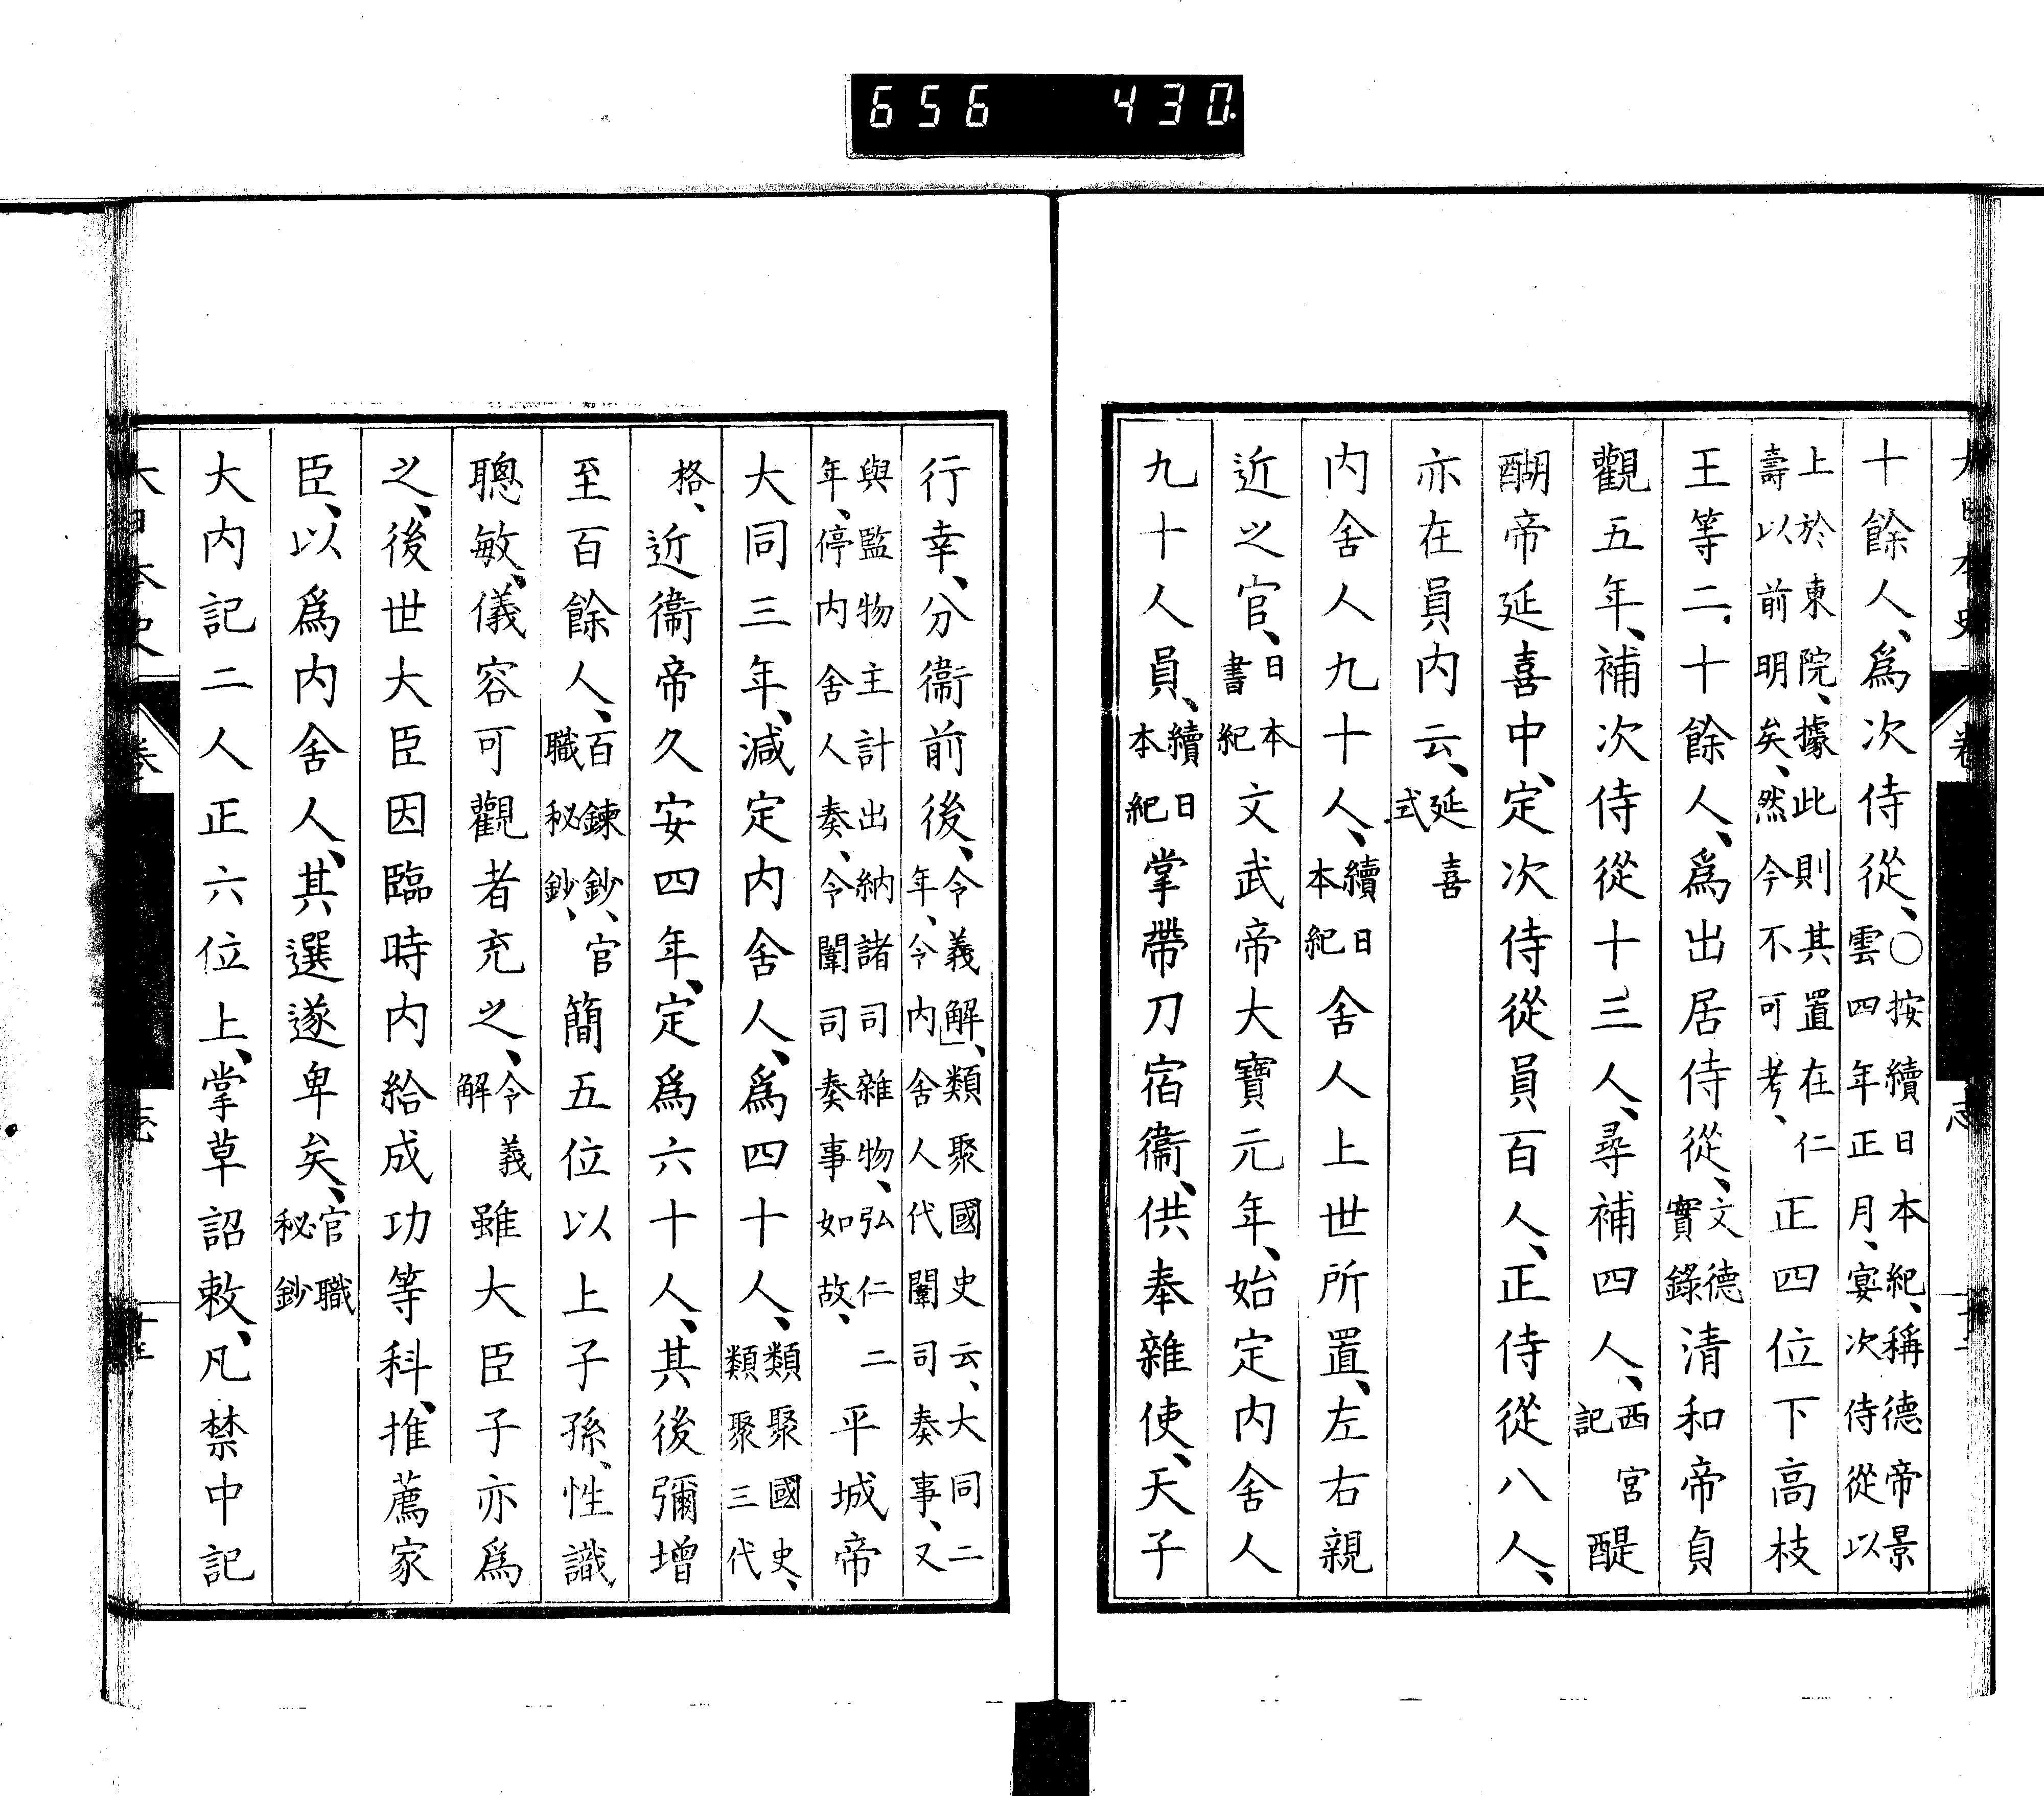 656 430
大日本史 卷 志
十餘人、爲次侍從、○按續日本紀、稱德帝景雲四年正月、宴次侍從以
上於東院、據此則其置在仁壽以前明矣、然今不可考、正四位下高枝
王等二十餘人、爲出居侍從、文德實錄清和帝貞
觀五年、補次侍從十三人、尋補四人、西宮記醍
醐帝延喜中、定次侍從員百人、正侍從八人、
亦在員内云、延喜式
内舍人九十人、續日本紀舍人上世所置、左右親
近之官、日本書紀文武帝大寶元年、始定内舍人
九十人員、續日本紀掌帶刀宿衞、供奉雜使、天子
行幸、分衞前後、令義解、類聚國史云、大同二年、令内舍人代闈司奏事、又
與監物主計出納諸司雜物、弘仁二年、停内舍人奏、令闈司奏事如故、平城帝
大同三年、減定内舍人、爲四十人、類聚國史、類聚三代
格、近衞帝久安四年、定爲六十人、其後彌增
至百餘人、百鍊鈔、官職秘鈔、簡五位以上子孫、性識
聰敏、儀容可觀者充之、令義解雖大臣子亦爲
之、後世大臣因臨時内給成功等科、推薦家
臣、以爲内舍人、其選遂卑矣、官職秘鈔
大内記二人正六位上、掌草詔敕、凡禁中記
大日本史 卷 志